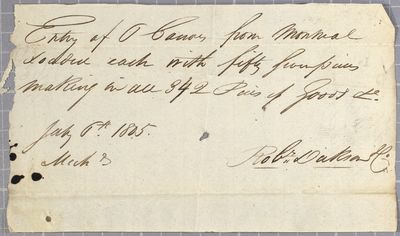 Entry of 8 Canoes from Montreal
loaded each with fifty five pieces
making in all 342 Pies of Goods &c
July 6th 1805.
Mich's Robt. Dickson & Co